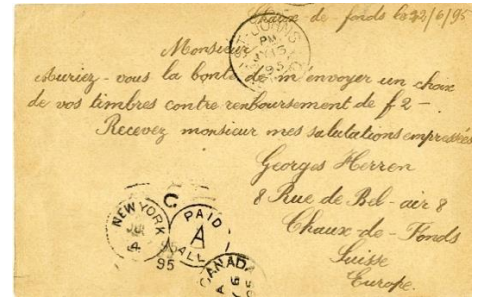 Chaux de-fonds le 22/6/95
ST. JOHN'S
PM
95
Monsieur
Auriez-vous la bonté de m'envoyer un choix
de vos timbres contre remboursement de f 2 —
Recevez monsieur mes salutations empressées
Georges Herren
8 Rue de Bel-air 8
Chaux-de-Fonds
Suisse
Europe.
C
NEW YORK
95
PAID
A
ALL
CANADA